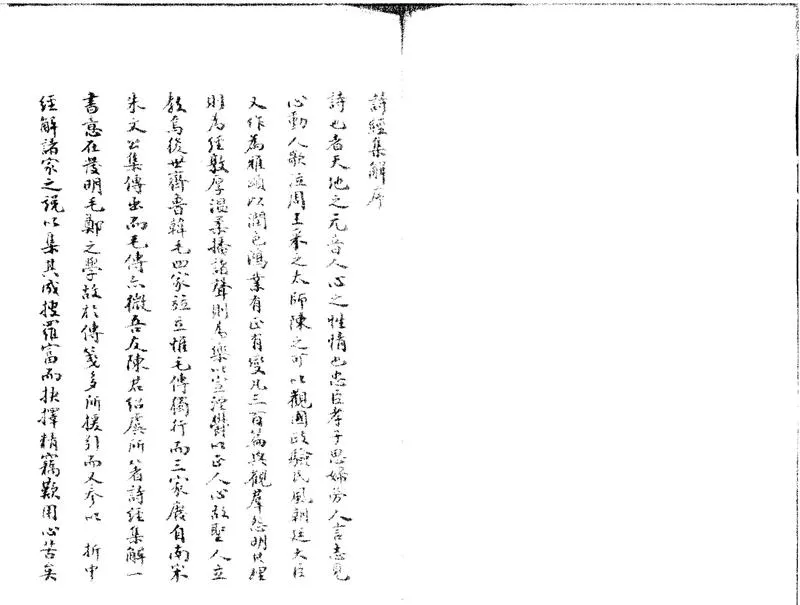 詩經集解序
詩也者天地之元音人心之性情也忠臣孝子思婦勞人言志見
心動人歌泣周王采之太師陳之可以觀國政驗民風朝廷大臣
又作為雅頌以潤色鴻業有正有變凡三百篇興觀群怨明其理
則為經敦厚溫柔播諸聲則為樂以宣湮鬱以正人心故聖人立
教焉後世齊魯韓毛四家竝立惟毛傳獨行而三家廢自南宋
朱文公集傳出而毛傳亦微吾友陳君紹虞所著詩經集解一
書意在發明毛鄭之學故於傳箋多所援引而又參以 折中
經解諸家之說以集其成搜羅富而抉擇精竊歎用心苦矣